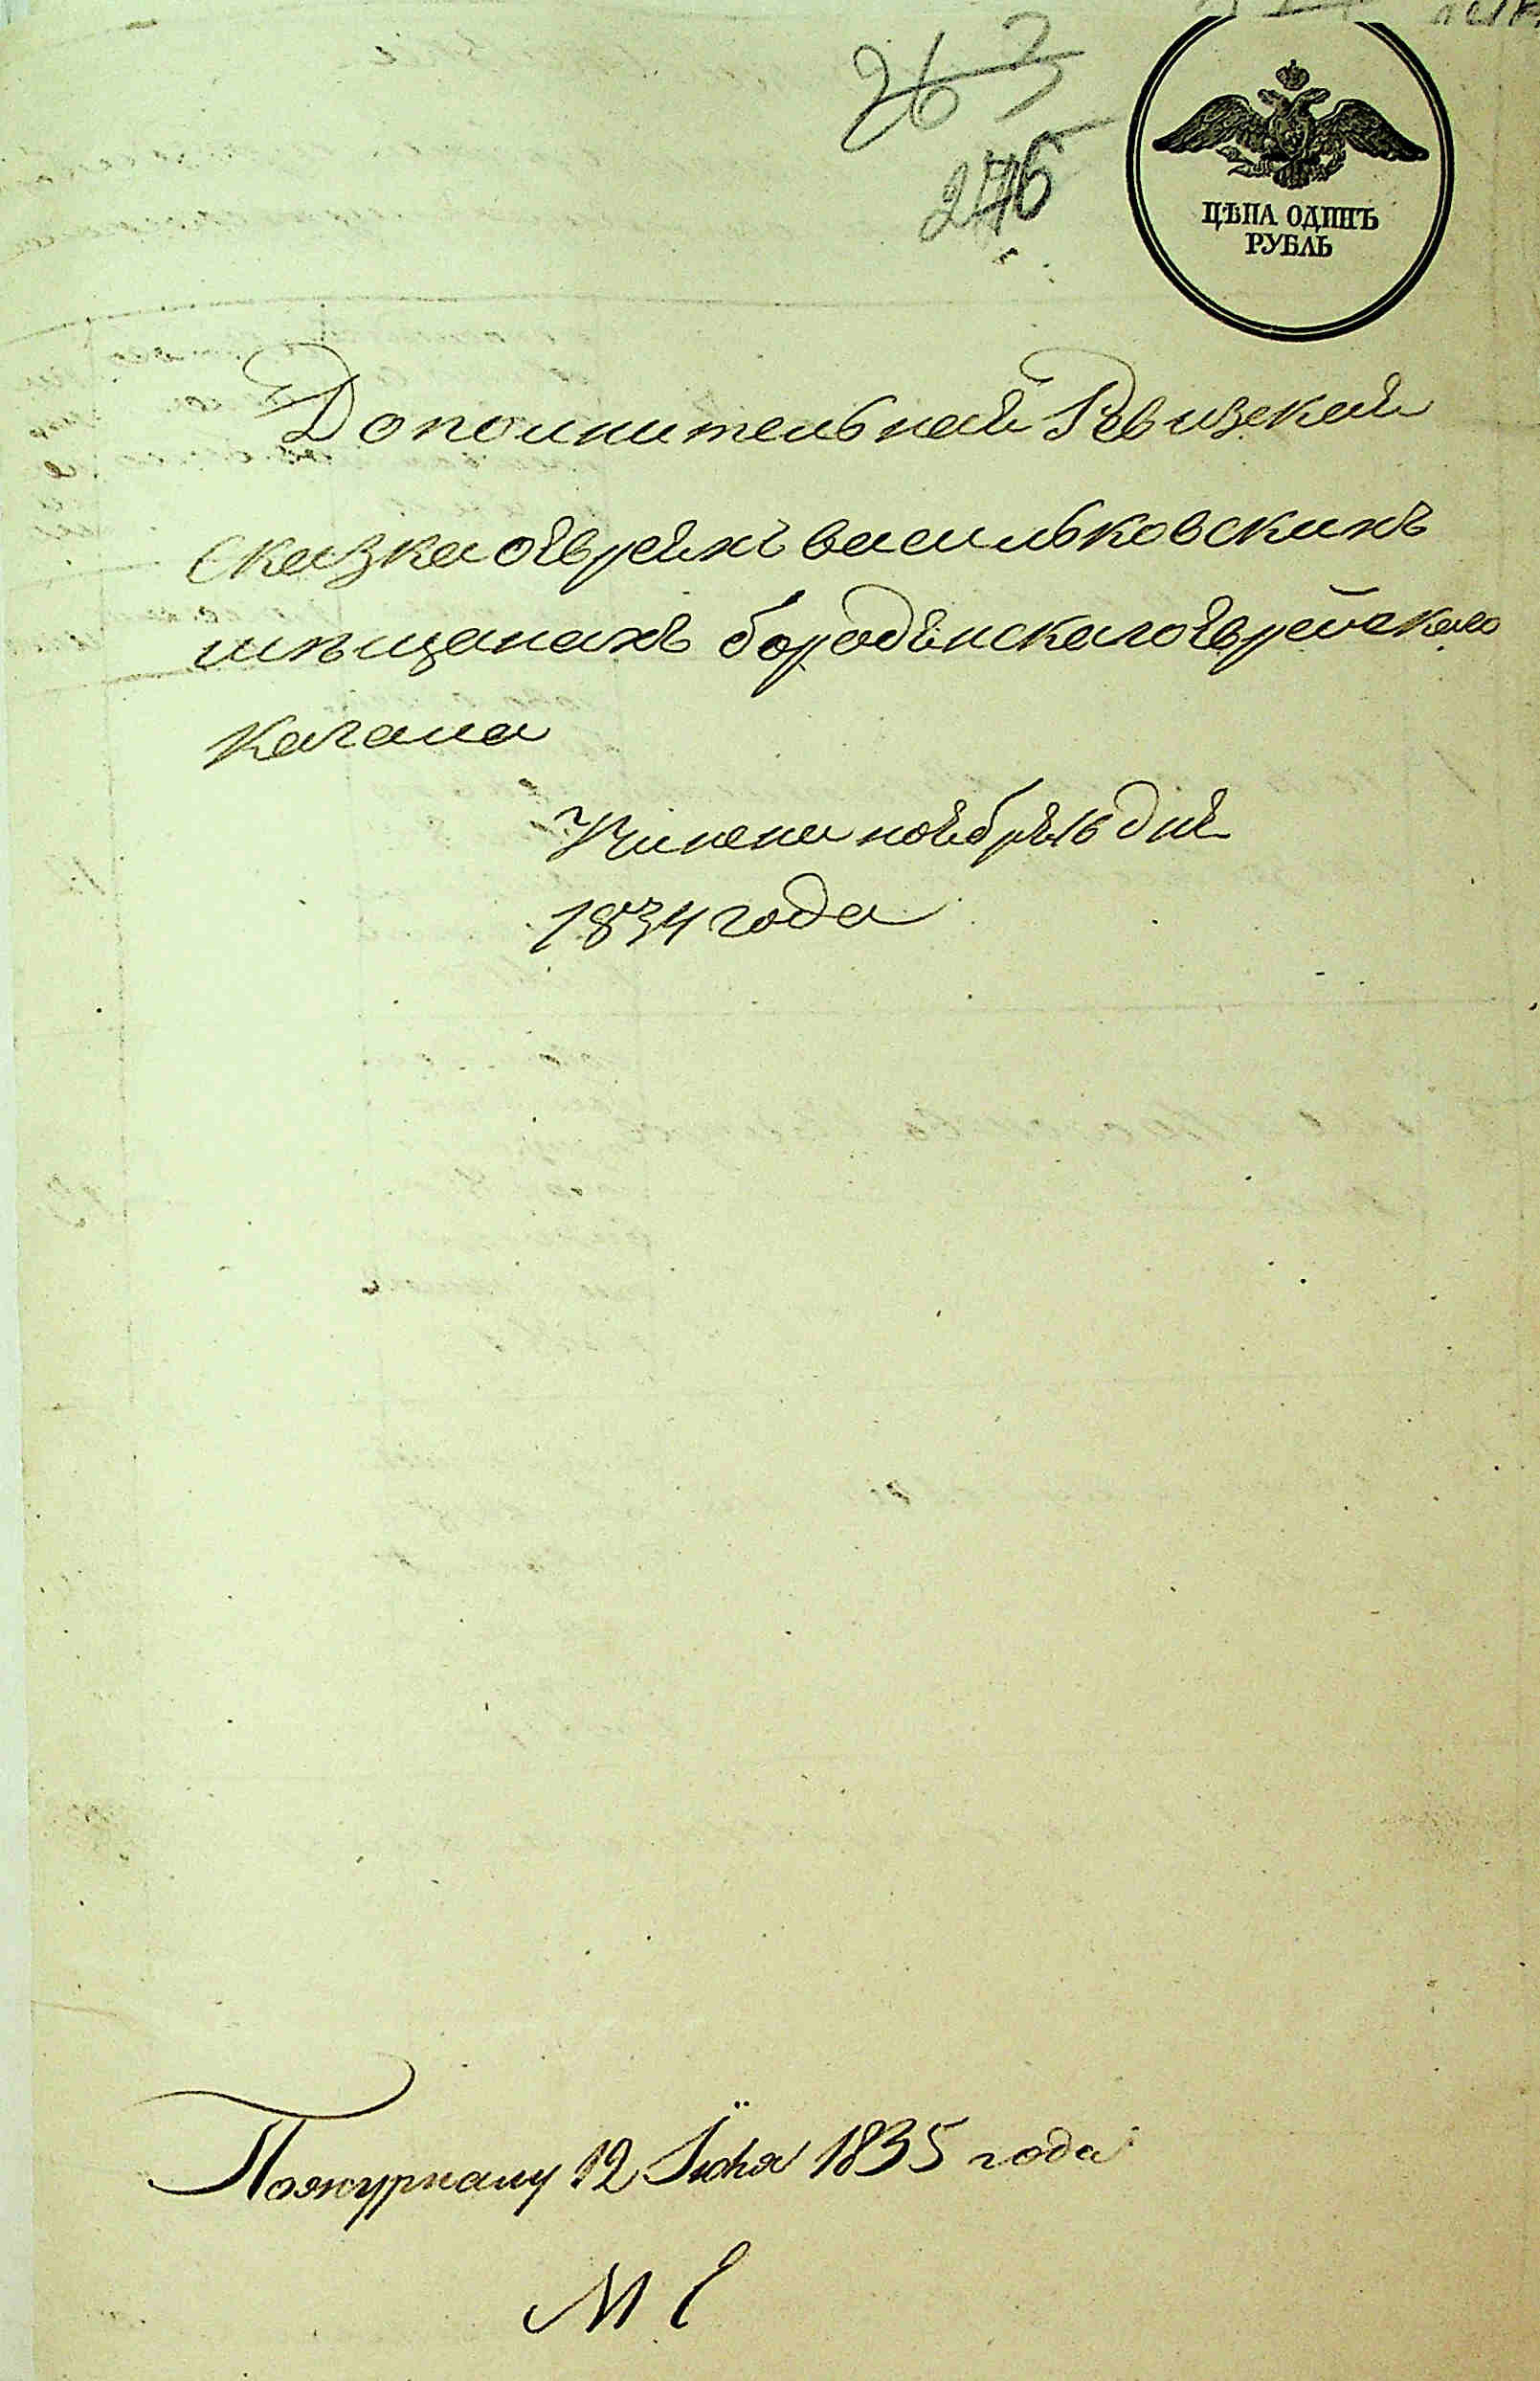 26
246
ЦѢНА ОДИНЪ
РУБЛЬ
Дополнительнай Ревизскаи
Сказка оевреяхъ васильковскихъ
мѣщанахъ бородянскаго еврейскаго
кагала
Учинена ноября 16 дня
1834 года
Пожурналу 12 Іюня 1835 года
М Е